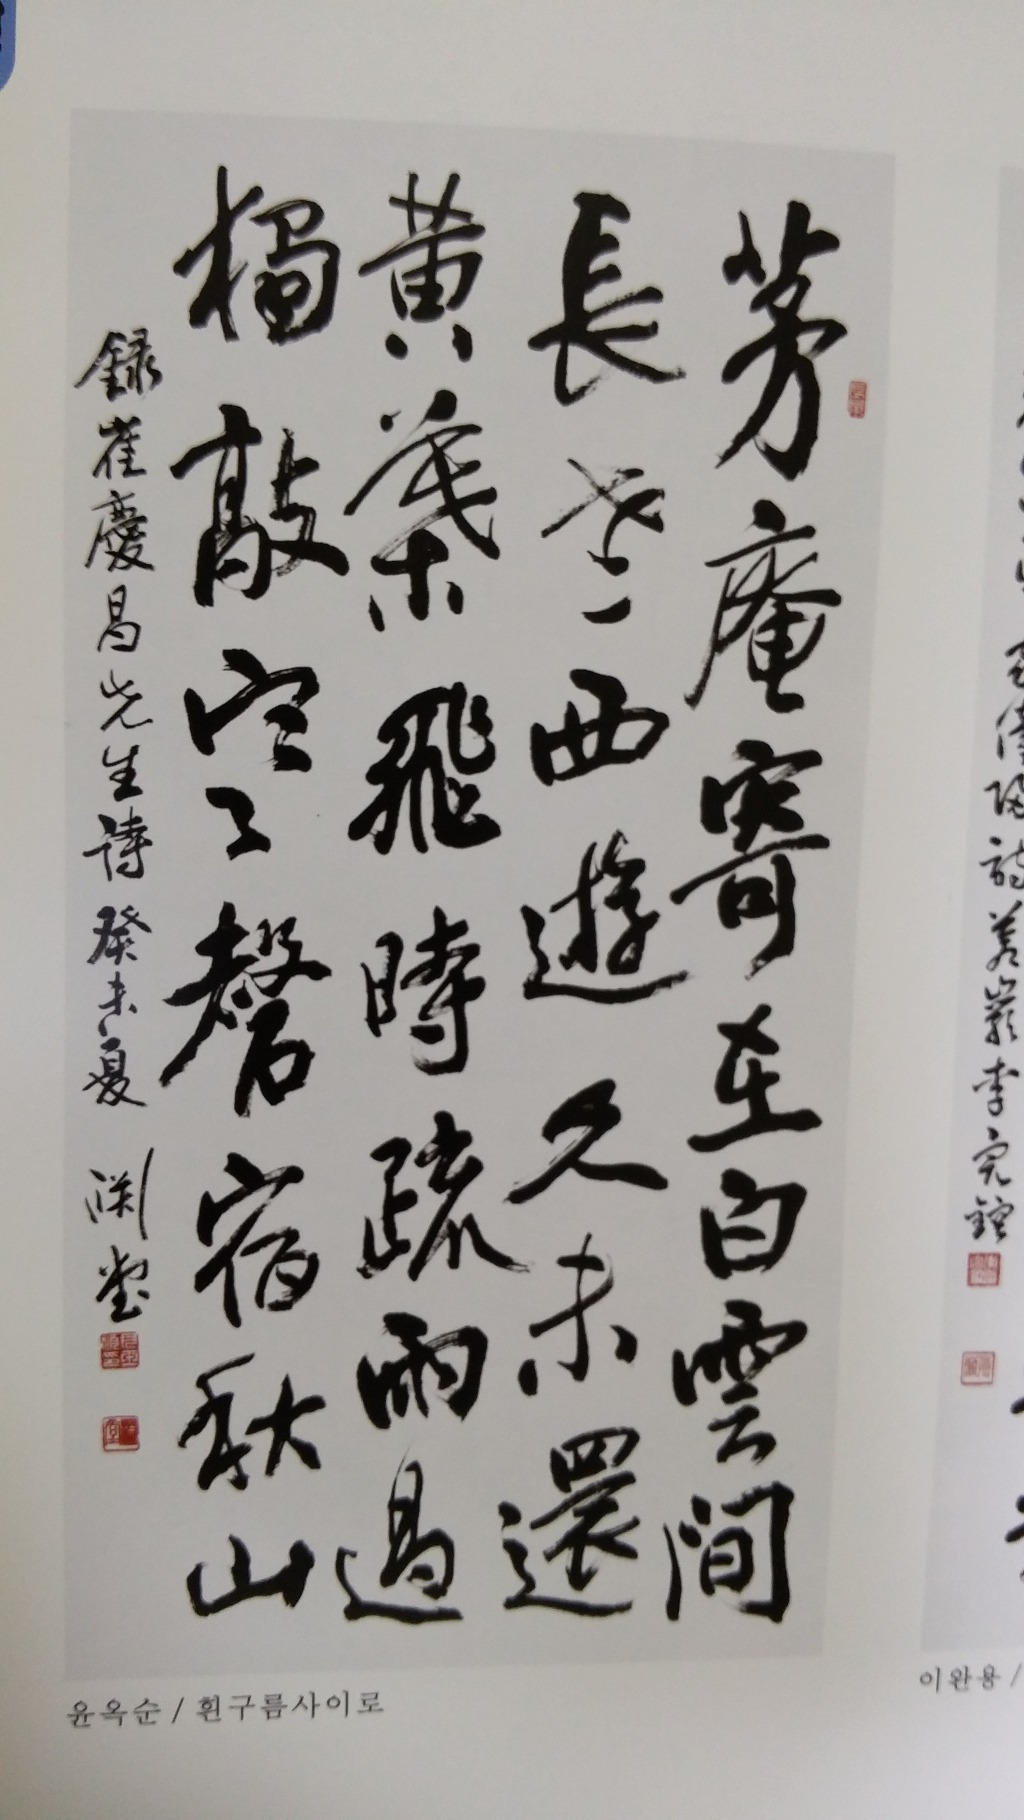 茅庵寄在白雲間
長老西遊久未還
黃葉飛時疏雨過
獨敲寒磬宿秋山
錄崔慶昌先生詩 癸未夏 淵堂
윤옥순 / 흰구름사이로
詩 若巖 李完鎔
이완용 /